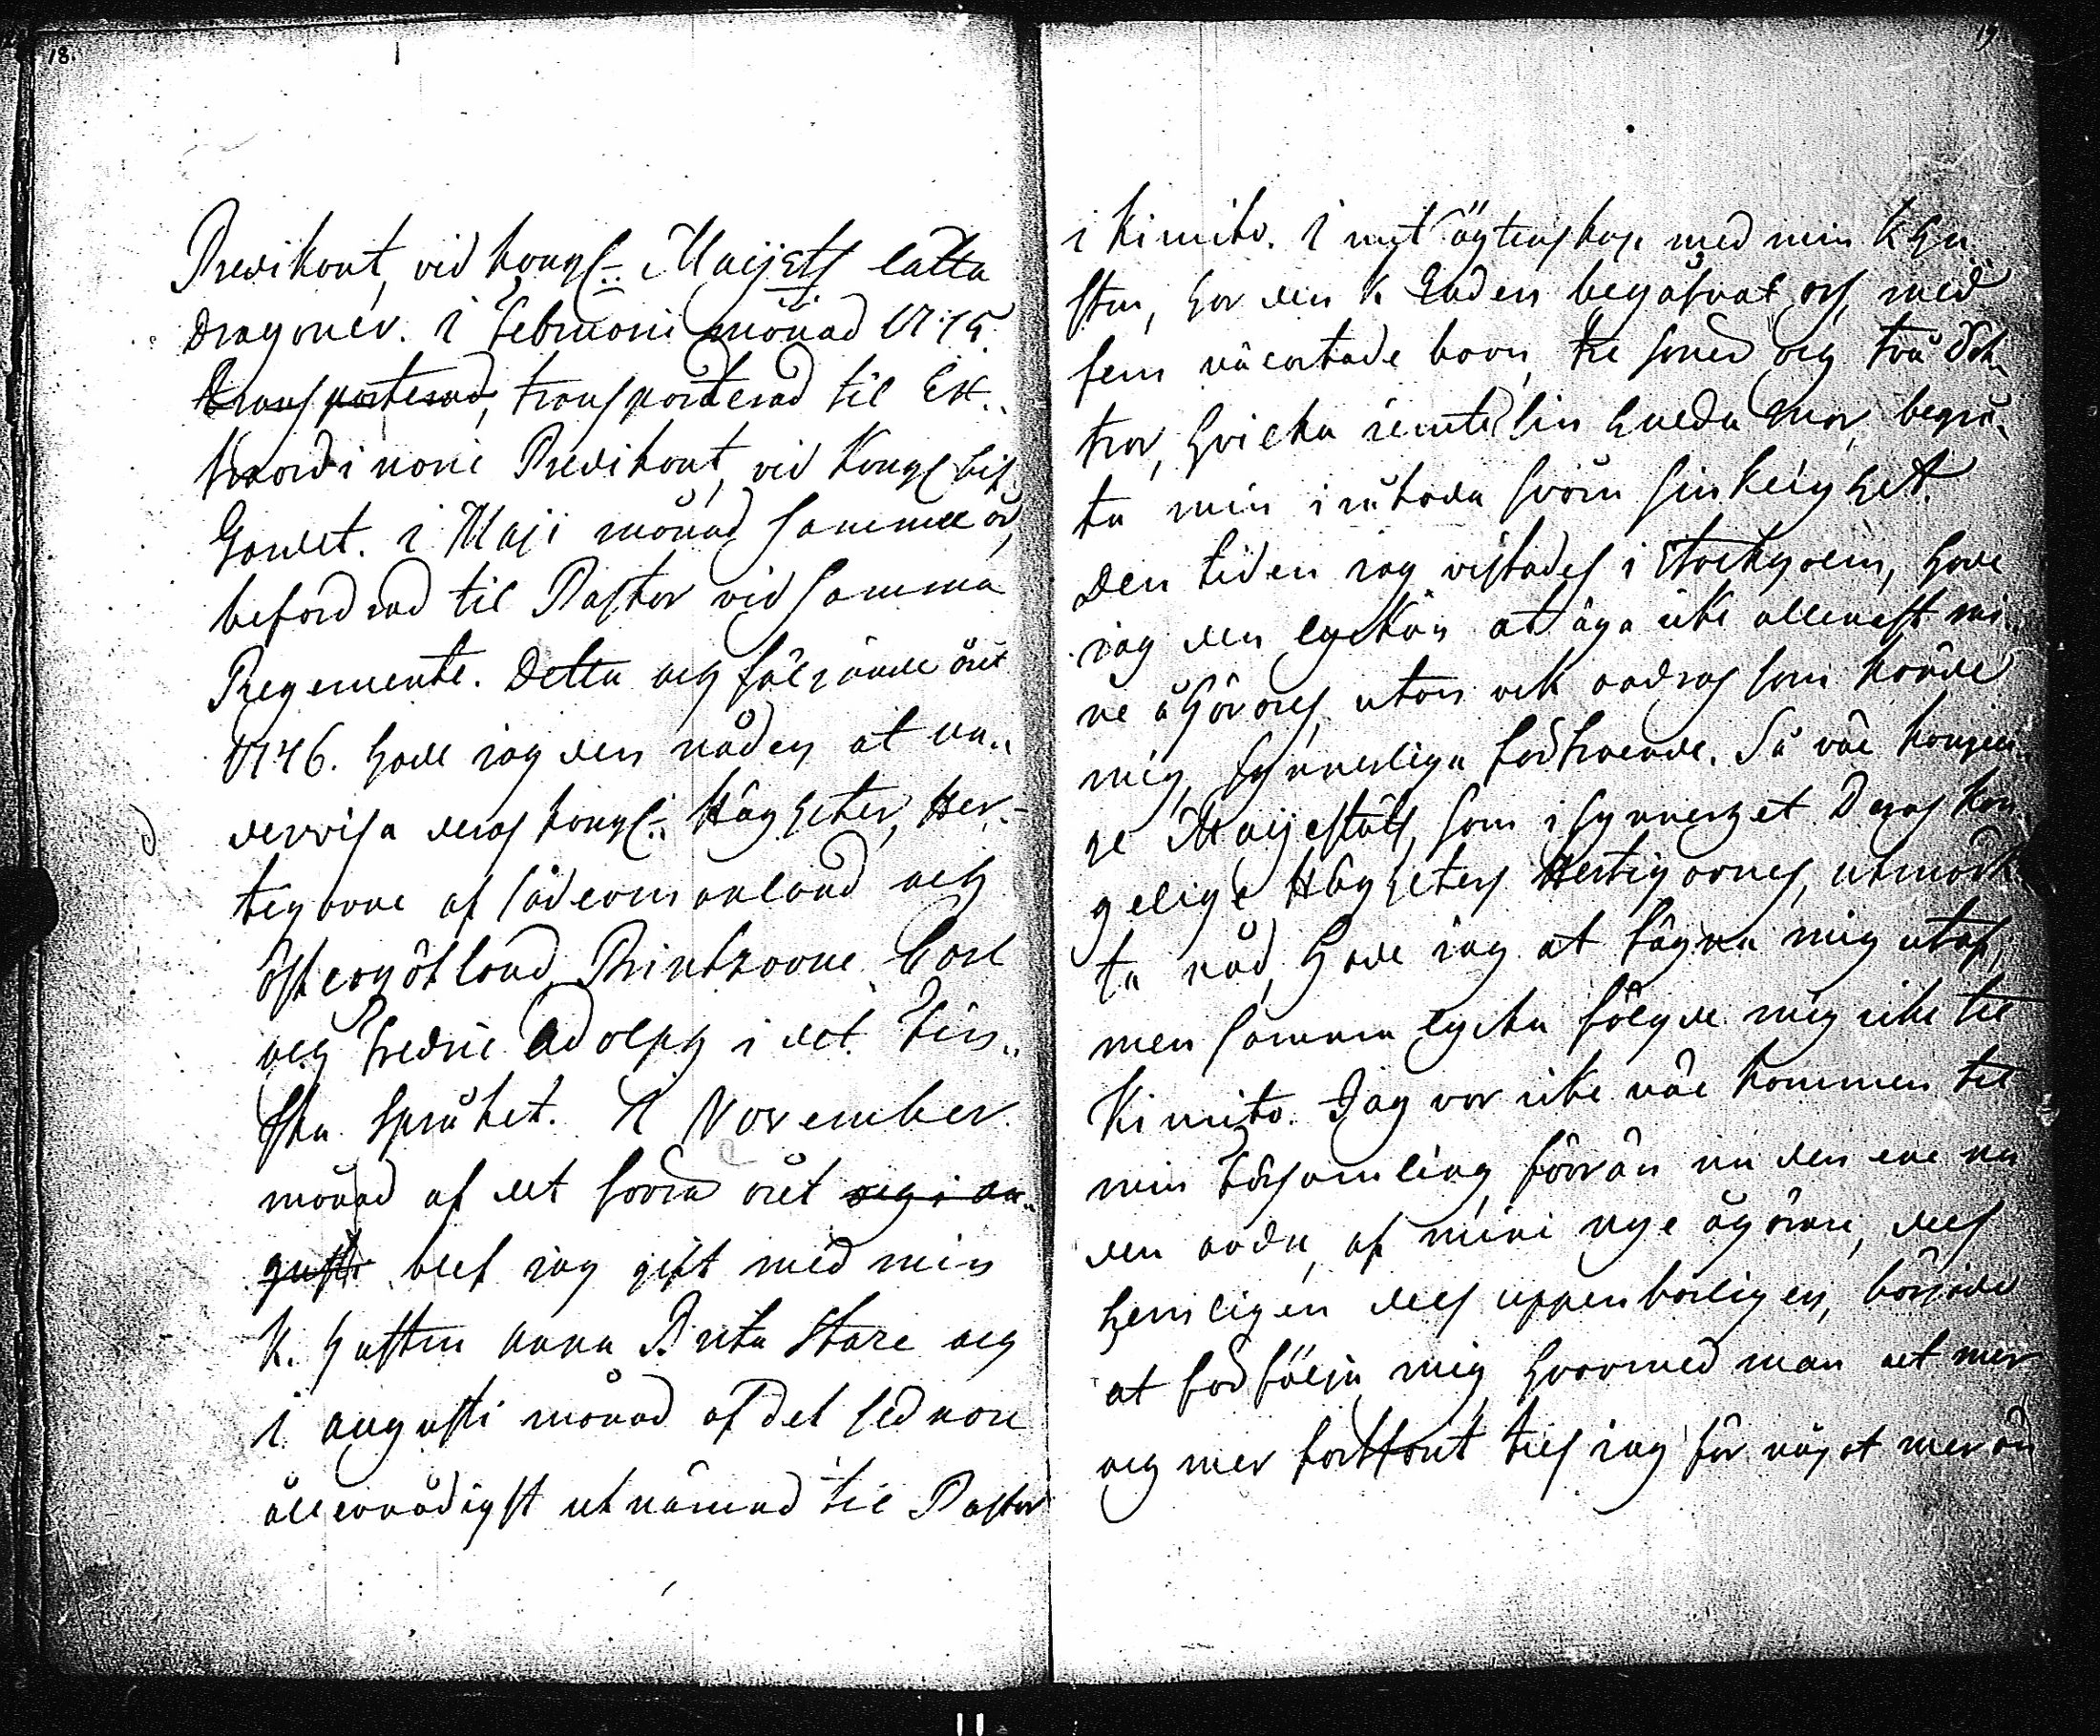 18.
Predikant, vid kongl: Maijsts lätta
dragoner. i Februarii månad 1775.
transporterad, transporterad til Ex-
traordinarie Predikant, vid Kongl Lif-
Gardet. i Maji månad samma år,
befordrad til Pastor vid samma
Regemente. Detta och följande året
1776. hade jag den nåden at un-
dervisa deras kongl: Högheter, Her-
tigarne af Södermanland och
Östergötland, Printzarne Carl
och Fredric Adolph i det Fin-
ska språket. I November
månad af det förra året och i au-
gusti blef jag gift med min
K. hustru Anna Brita Stare och
i augusti månad af det sednare
allernådigst utnämnd til Pastor
19
i Kimito. I mit ägtenskap med min K hu-
stru, har den k Guden begåfvat oss med
fem välartade barn, tre söner och två döt-
trar, hvilka jemte sin hulda mor, begrå-
ta min inråkade svåra sinkelighet.
Den tiden jag vistades i Stockholm, hade
jag den lyckan at äga icke allenast mi-
ne åhörares, utan ock andras som kände
mig, synnerliga förtroende. Så väl konun-
ge Maijestäts, som i synnerhet Deras kon
gelige Högheters Hertigarnes, utmärk-
ta nåd, hade jag at fägna mig utaf,
men samma lycka fölgde mig icke til
Kimito. Jag var icke väl kommen til
min församling, förrän nu den ene nu
den andra, af mine nye åhörare, dels
hemligen dels uppenbarligen, började
at förfölja mig, hvarmed man alt mer
och mer fortfant tils jag för något mer än